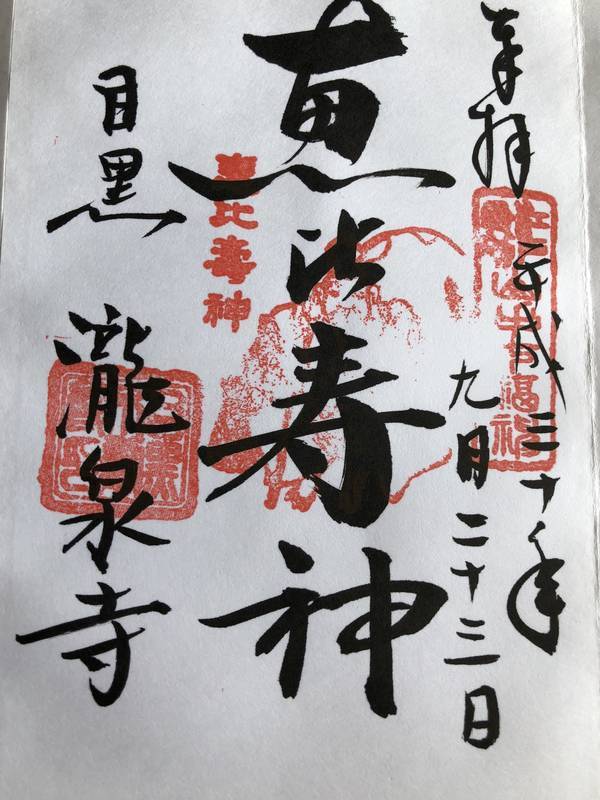 奉拝
平成三十年
九月二十三日
恵比寿神
恵比寿神
目黒
瀧泉寺